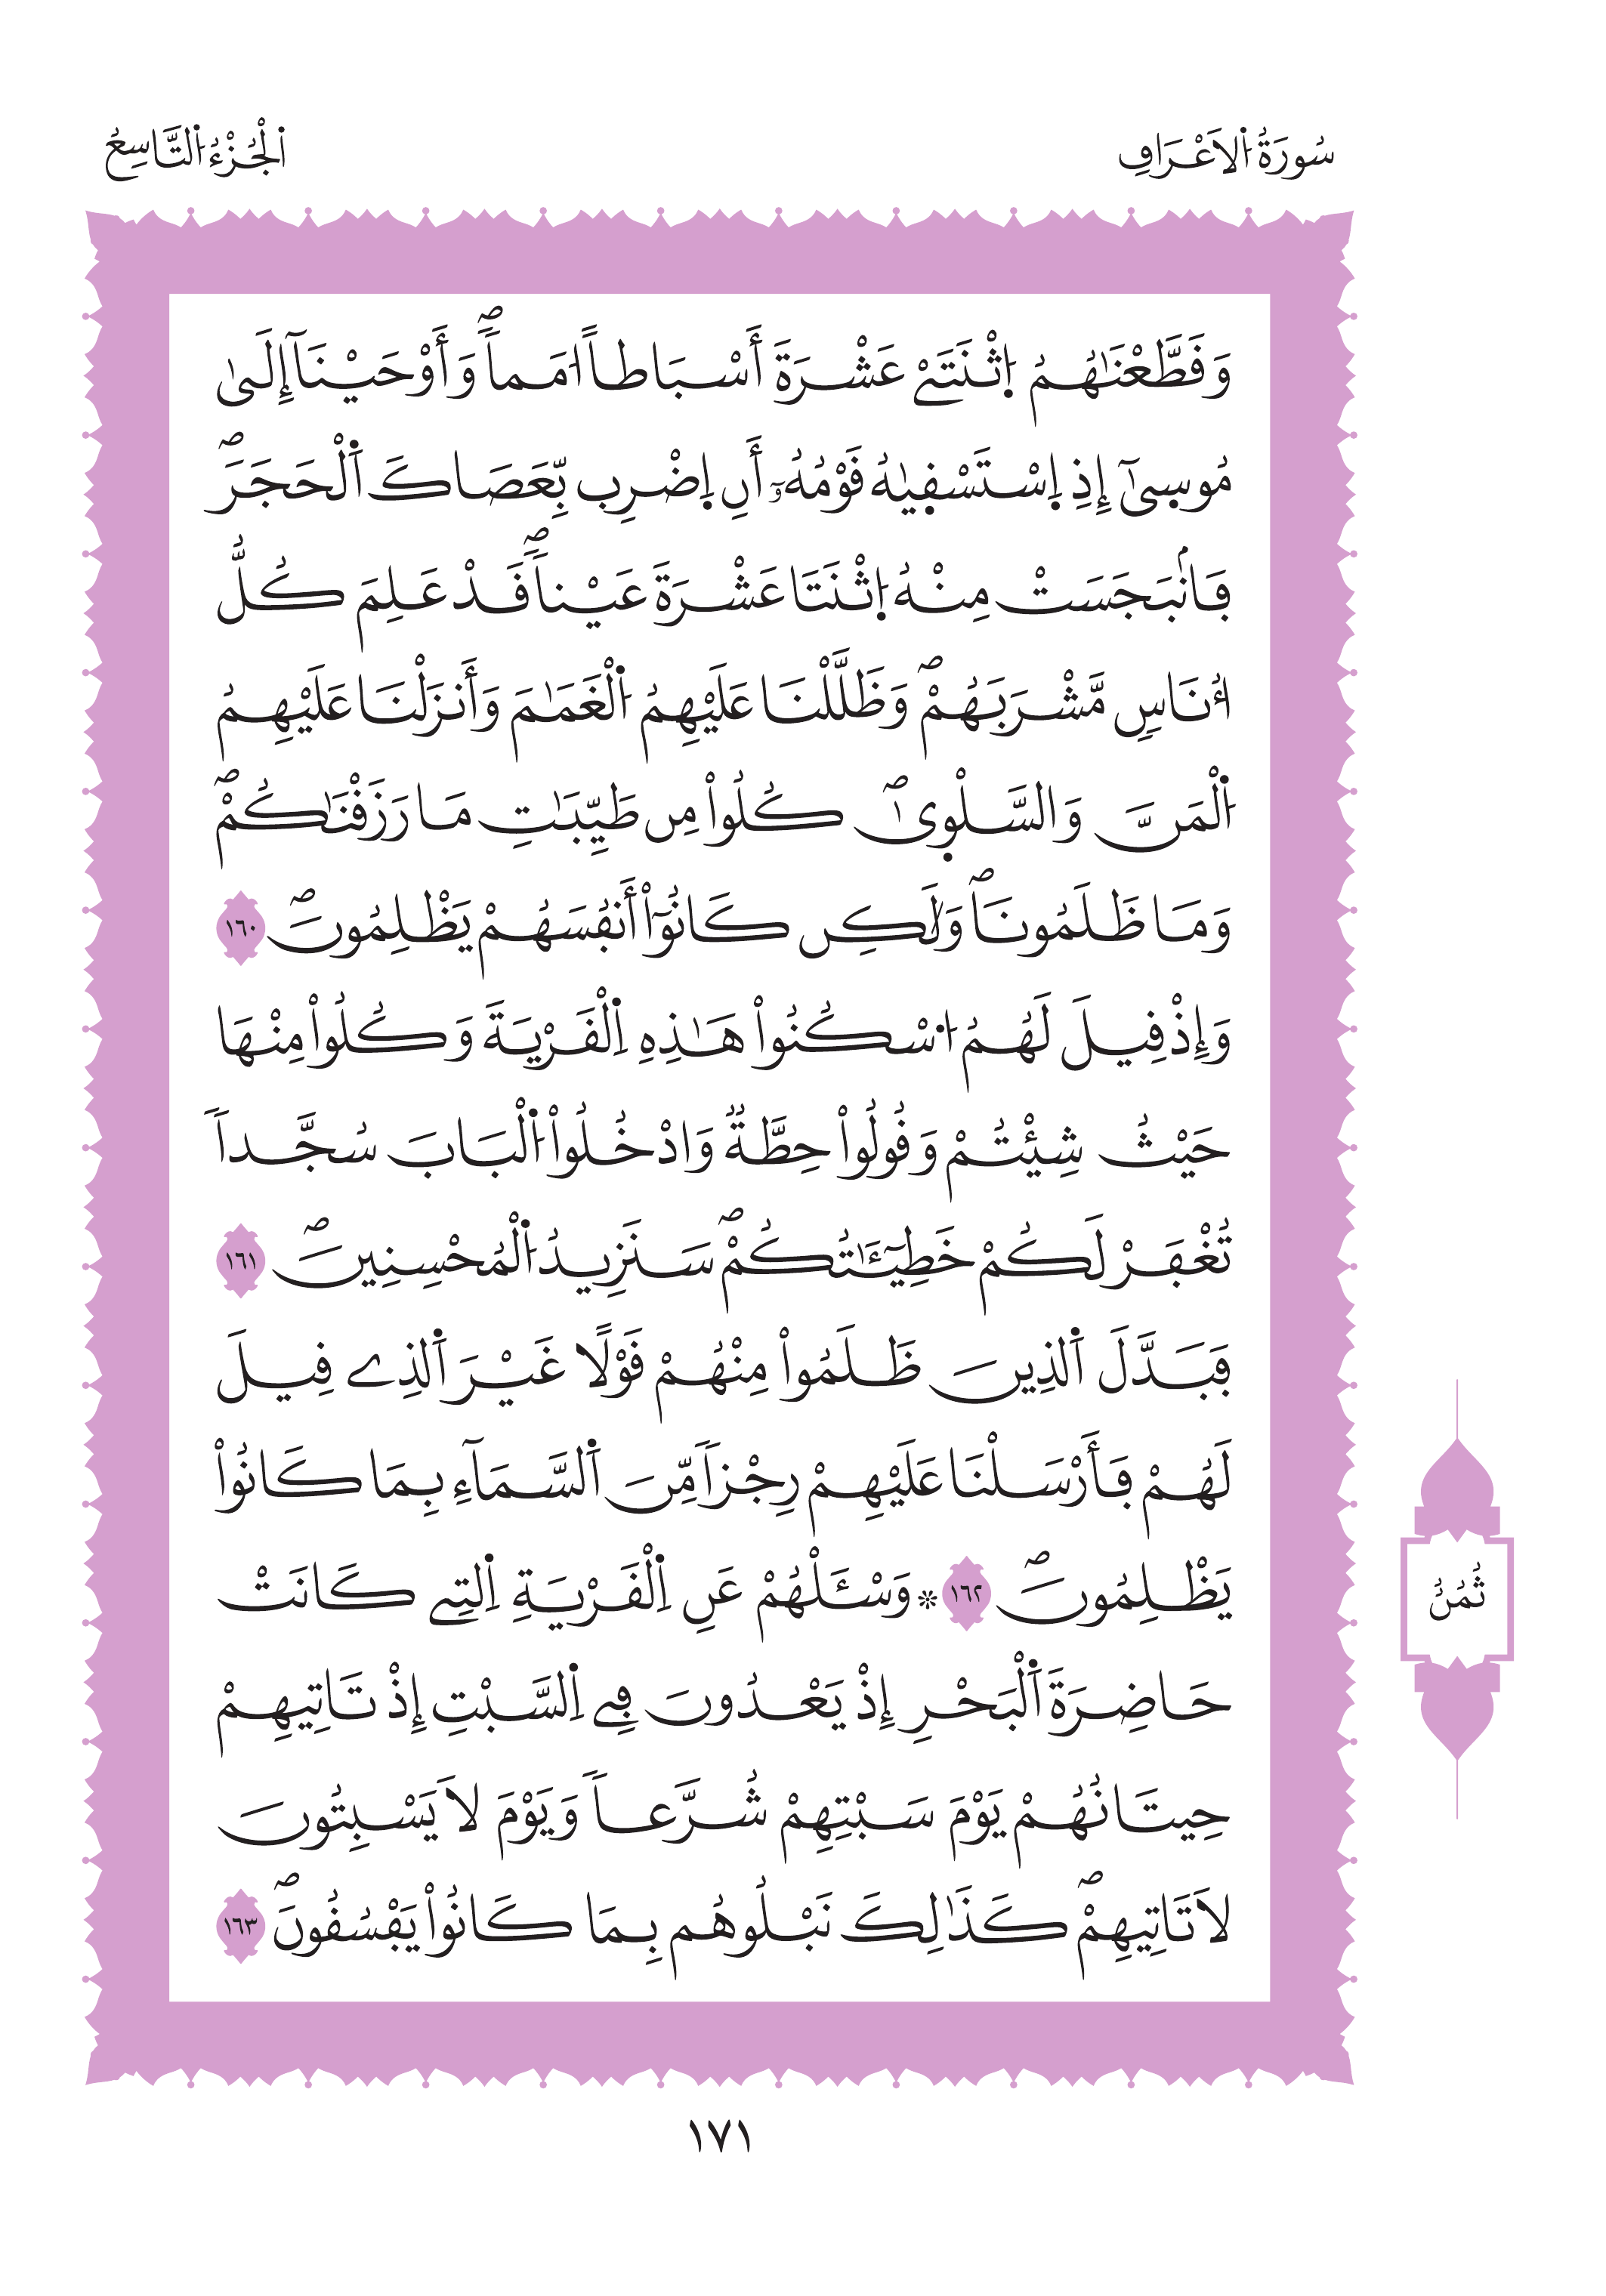 سُورَةُ اُ۬لَاعْرَافِ
اُ۬لْجُزْءُ اُ۬لتَّاسِعُ
وَقَطَّعْنَٰهُمُ اُ۪ثْنَتَےْ عَشْرَةَ أَسْبَاطاً اُمَماٗۖ وَأَوْحَيْنَآ إِلَىٰ
مُوس۪ىٰٓ إِذِ اِ۪سْتَسْق۪يٰهُ قَوْمُهُۥٓ أَنِ اِ۪ضْرِب بِّعَصَاكَ اَ۬لْحَجَرَۖ
فَانۢبَجَسَتْ مِنْهُ اُ۪ثْنَتَا عَشْرَةَ عَيْناٗۖ قَدْ عَلِمَ كُلُّ
أُنَاسٖ مَّشْرَبَهُمْۖ وَظَلَّلْنَا عَلَيْهِمُ اُ۬لْغَمَٰمَ وَأَنزَلْنَا عَلَيْهِمُ
اُ۬لْمَنَّ وَالسَّلْو۪ىٰۖ كُلُواْ مِن طَيِّبَٰتِ مَا رَزَقْنَٰكُمْۖ
وَمَا ظَلَمُونَاۖ وَلَٰكِن كَانُوٓاْ أَنفُسَهُمْ يَظْلِمُونَۖ ١٦٠
وَإِذْ قِيلَ لَهُمُ اُ۟سْكُنُواْ هَٰذِهِ اِ۬لْقَرْيَةَ وَكُلُواْ مِنْهَا
حَيْثُ شِئْتُمْ وَقُولُواْ حِطَّةٞ وَادْخُلُواْ اُ۬لْبَابَ سُجَّداٗ
تُغْفَرْ لَكُمْ خَطِيٓـَٰٔتُكُمْۖ سَنَزِيدُ اُ۬لْمُحْسِنِينَۖ ١٦١
فَبَدَّلَ اَ۬لذِينَ ظَلَمُواْ مِنْهُمْ قَوْلًا غَيْرَ اَ۬لذِے قِيلَ
لَهُمْ فَأَرْسَلْنَا عَلَيْهِمْ رِجْزاٗ مِّنَ اَ۬لسَّمَآءِ بِمَا كَانُواْ
يَظْلِمُونَۖ ١٦٢ ۞ وَسْـَٔلْهُمْ عَنِ اِ۬لْقَرْيَةِ اِ۬لتِے كَانَتْ
حَاضِرَةَ اَ۬لْبَحْرِ إِذْ يَعْدُونَ فِے اِ۬لسَّبْتِ إِذْ تَاتِيهِمْ
حِيتَانُهُمْ يَوْمَ سَبْتِهِمْ شُرَّعاٗ وَيَوْمَ لَا يَسْبِتُونَ
لَا تَاتِيهِمْۖ كَذَٰلِكَ نَبْلُوهُم بِمَا كَانُواْ يَفْسُقُونَۖ ١٦٣
ثُمُنُ
١٧١